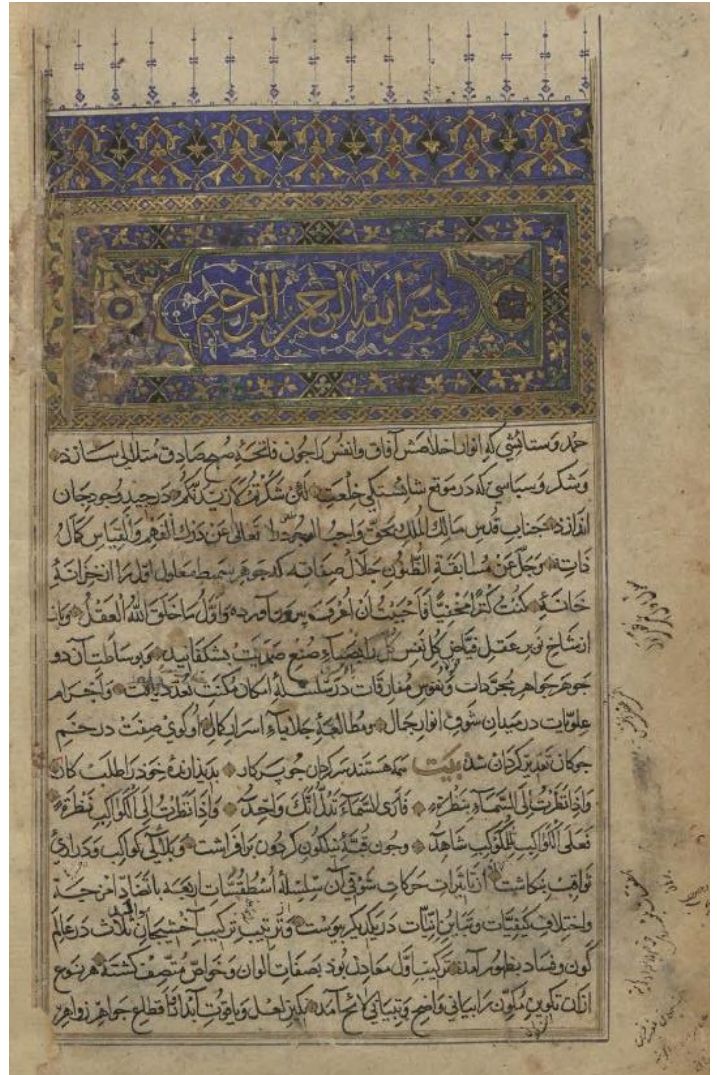 بسم الله الرحمن الرحیم
حمد و ستایشی که انوار اخلاصش آفاق و انفس را چون فاتحهٔ صبح صادق متلالی سازد
و شکر و سپاسی که در موقع شایستگی خلعت لئن شکرتم لازیدنکم در جید وجود جان
اندازد جناب قدس مالک الملک بحق واجب الوجود را تعالی عن درک الفهم و القیاس کمال
ذاته و جل عن مسابقة الظنون جلال صفاته که جوهر بسیط معلول اول را از خزانهٔ
خانهٔ کنت کنزا مخفیا فاحببت ان اعرف بیرون آورده و اول ما خلق الله العقل و باز
از شاخ نوبر عقل فیاض کل نفس کل را بضیاء صنع صمدیت بشکفانید و بوساطت آن دو
جوهر جواهر مجردات و نفوس مفارقات در سلسلهٔ امکان مکنت تعدد یافت و اجرام
علویات در میدان شوق انوار جمال و مطالعهٔ جلایاء اسرار کمال او کوی صفت در خم
چوکان تقدیر کردان شد بیت همه هستند سرکردان چو پرکار پدیدارندهٔ خود را طلب کار
و اذا نظرت الی السماء بنظرة فاری السماء تدل انک واحد و اذا نظرت الی الکواکب نظرة
فعلی الکواکب للمکوکب شاهد و چون قبهٔ نیلکون کردون برافراشت و بلالی کواکب و دراری
ثواقب بنکاشت از تاثیرات حرکات شوقی آن سلسلهٔ اسطقسات اربعه با تضاد امزجه
و اختلاف کیفیات و تباین انیات در یکدیکر پیوست و ترتیب ترکیب اخشیجان ثلاث در عالم
کون و فساد بظهور آمد ترکیب اول معادن بود بصفات الوان و خواص متصف کشته هر نوع
از ان تکوین مکون را بیانی واضح و تبیانی لائح آمد نکین لعل و یاقوت آبدار قطاع جواهر زواهر